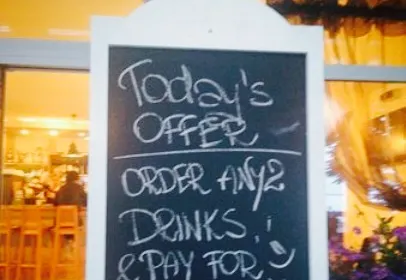 Today's
OFFER
ORDER ANY 2
DRINKS,
& PAY FOR